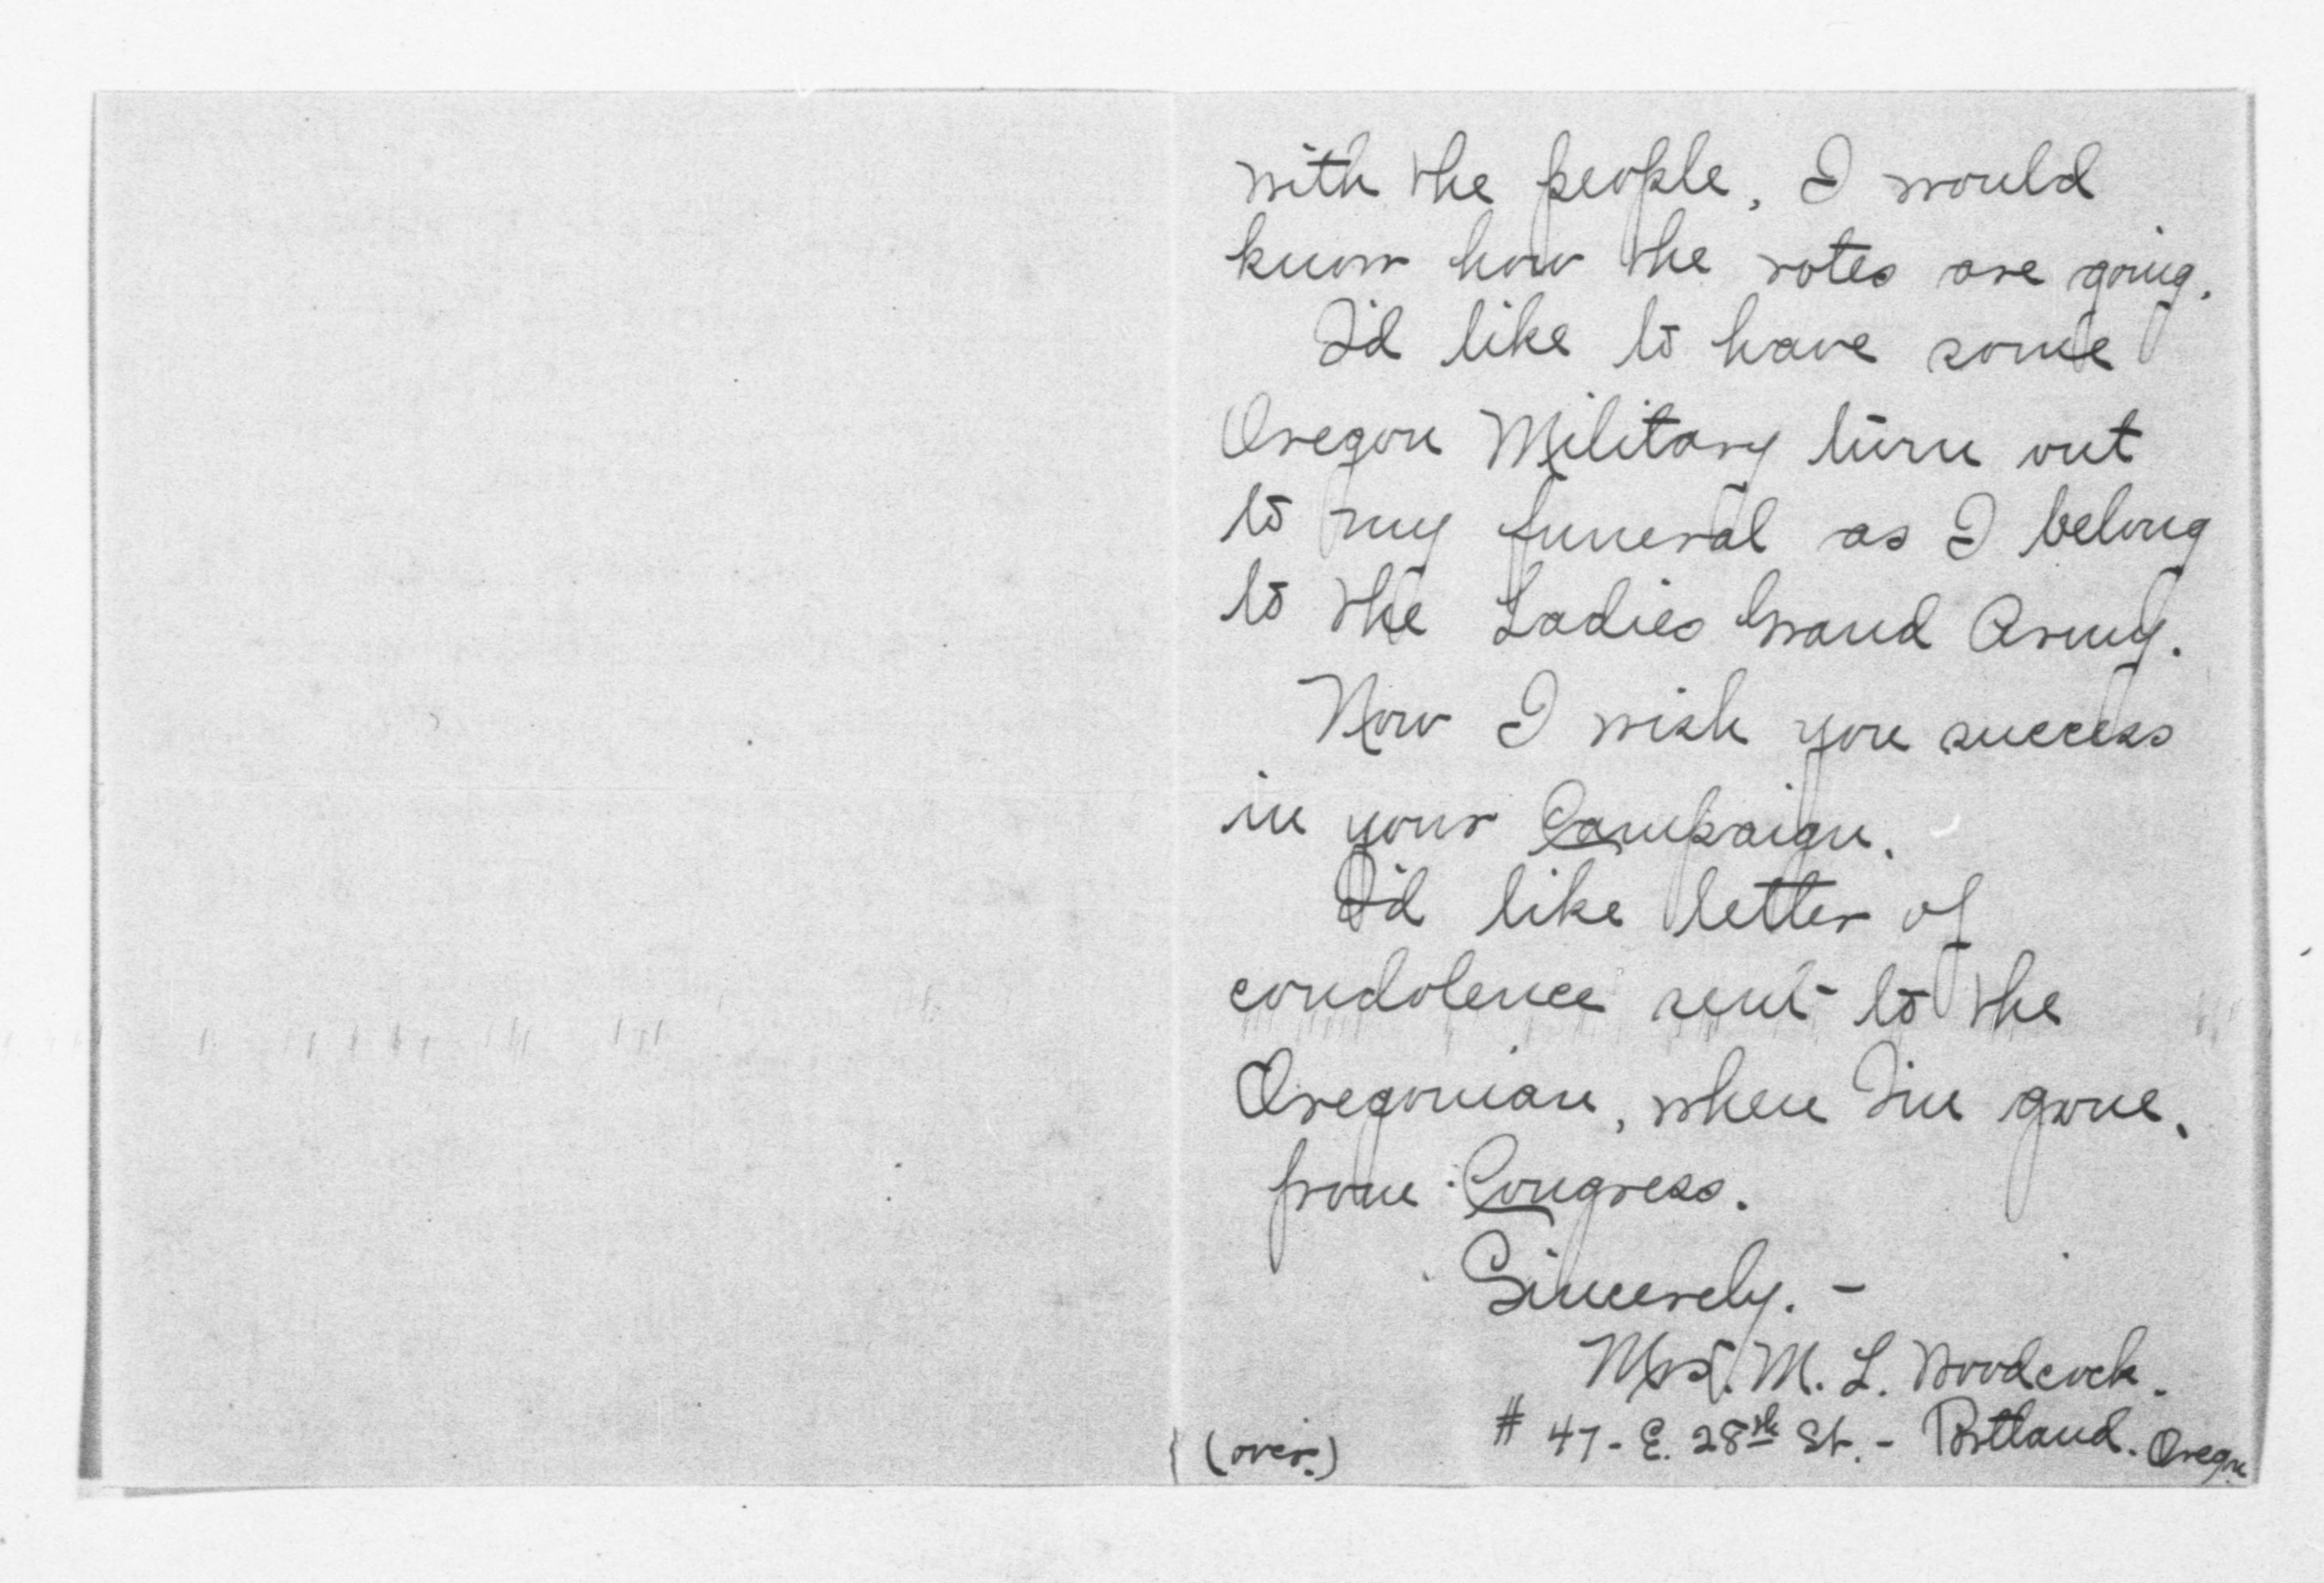 with the people, I would
know how the votes are going.
I'd like to have some
Oregon Military turn out
to my funeral as I belong
to the Ladies Grand Army.
Now I wish you success
in your Campaign.
I'd like letter of
condolence sent to the
Oregonian, when I'm gone.
from Congress.
Sincerely. -
Mrs. M. L. Woodcock.
# 47 - E. 28th St. - Portland. Oregon
(over.)